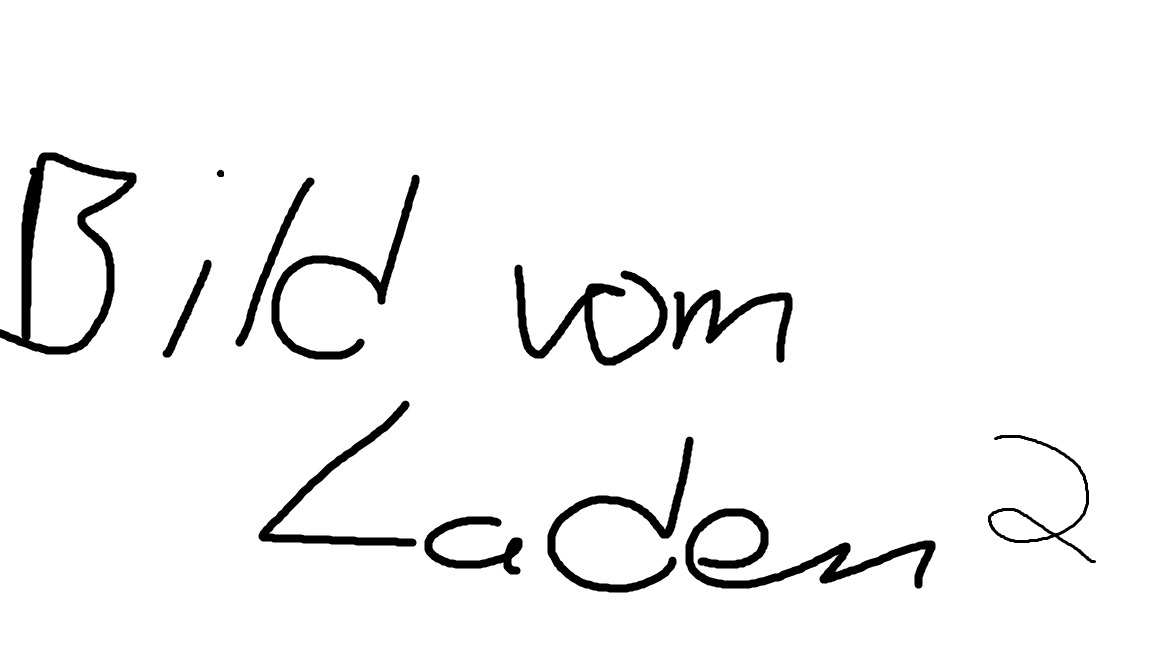 Bild vom
Laden 2